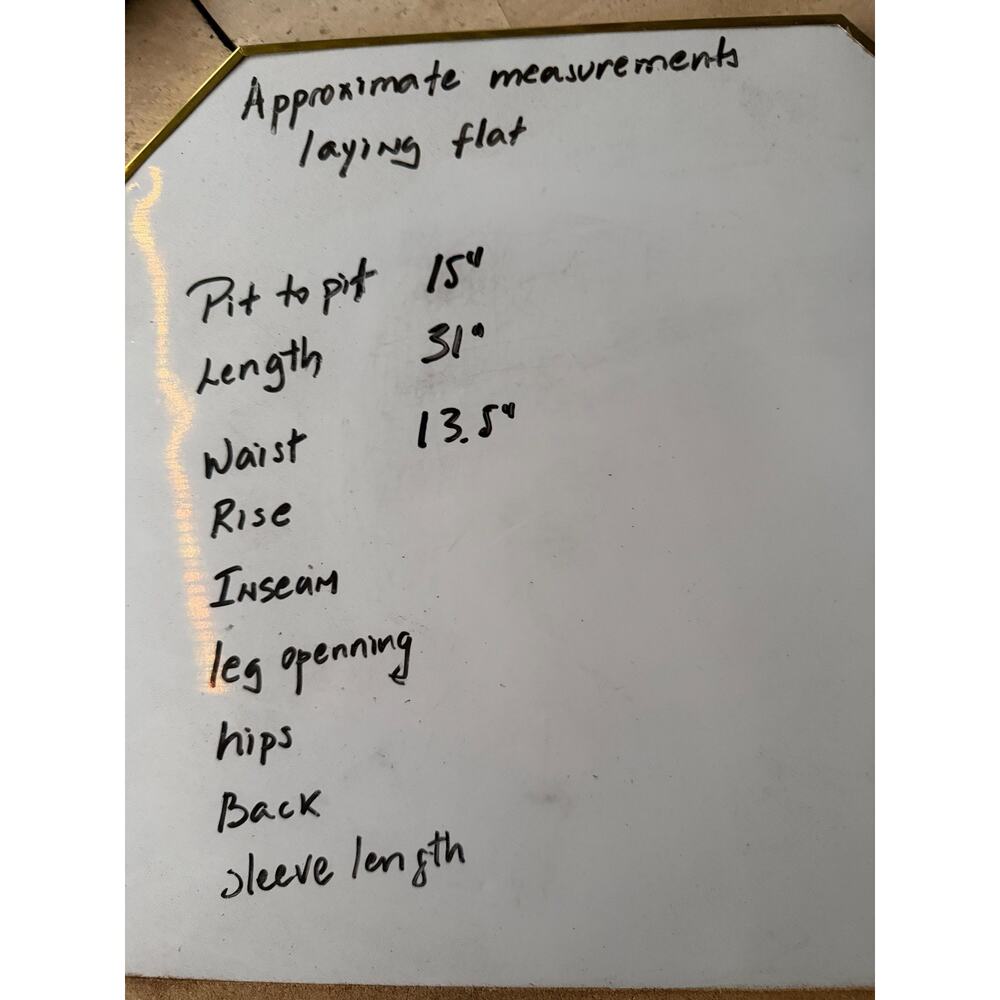 Approximate measurements
laying flat
Pit to pit 15"
Length 31"
Waist 13.5"
Rise
Inseam
leg openning
hips
Back
sleeve length